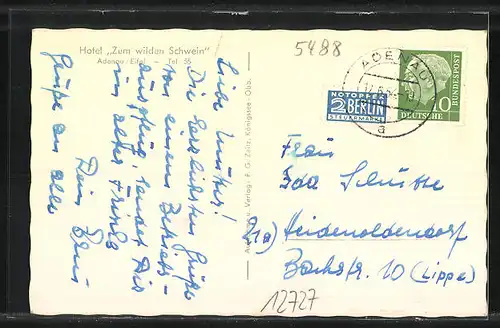 Hotel „Zum wilden Schwein"
Adenau/Eifel - Tel 55
Liebe Mutter!
Die herzlichsten Grüße
von einem Betriebs-
ausflug sendet Dir
in alter Frische
Dein
Grüße an alle
Verlag: F. G. Zeitz, Königsee-Obb.
5488
ADENAU
a
NOTOPFER
2 BERLIN
STEUERMARKE
10
DEUTSCHE
BUNDESPOST
Frau
Ida Schütte
Heidenoldendorf
Bachstr. 10 (Lippe)
12727